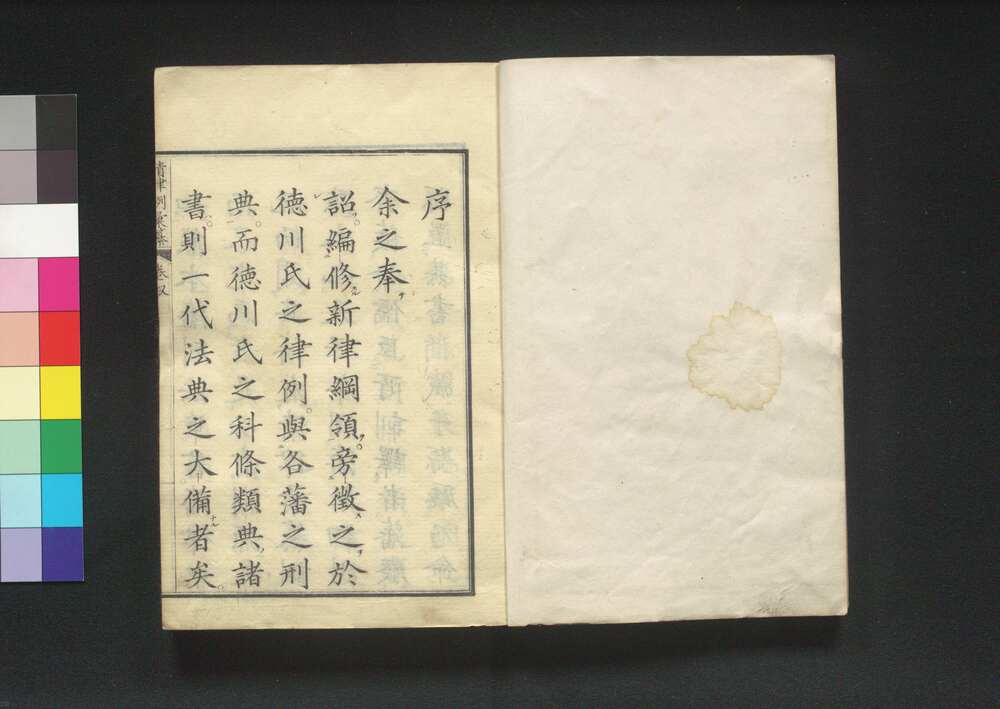 序
余之奉
詔編修新律綱領旁徵之於
徳川氏之律例與各藩之刑
典而徳川氏之科條類典諸
書則一代法典之大備者矣
清律例彙纂